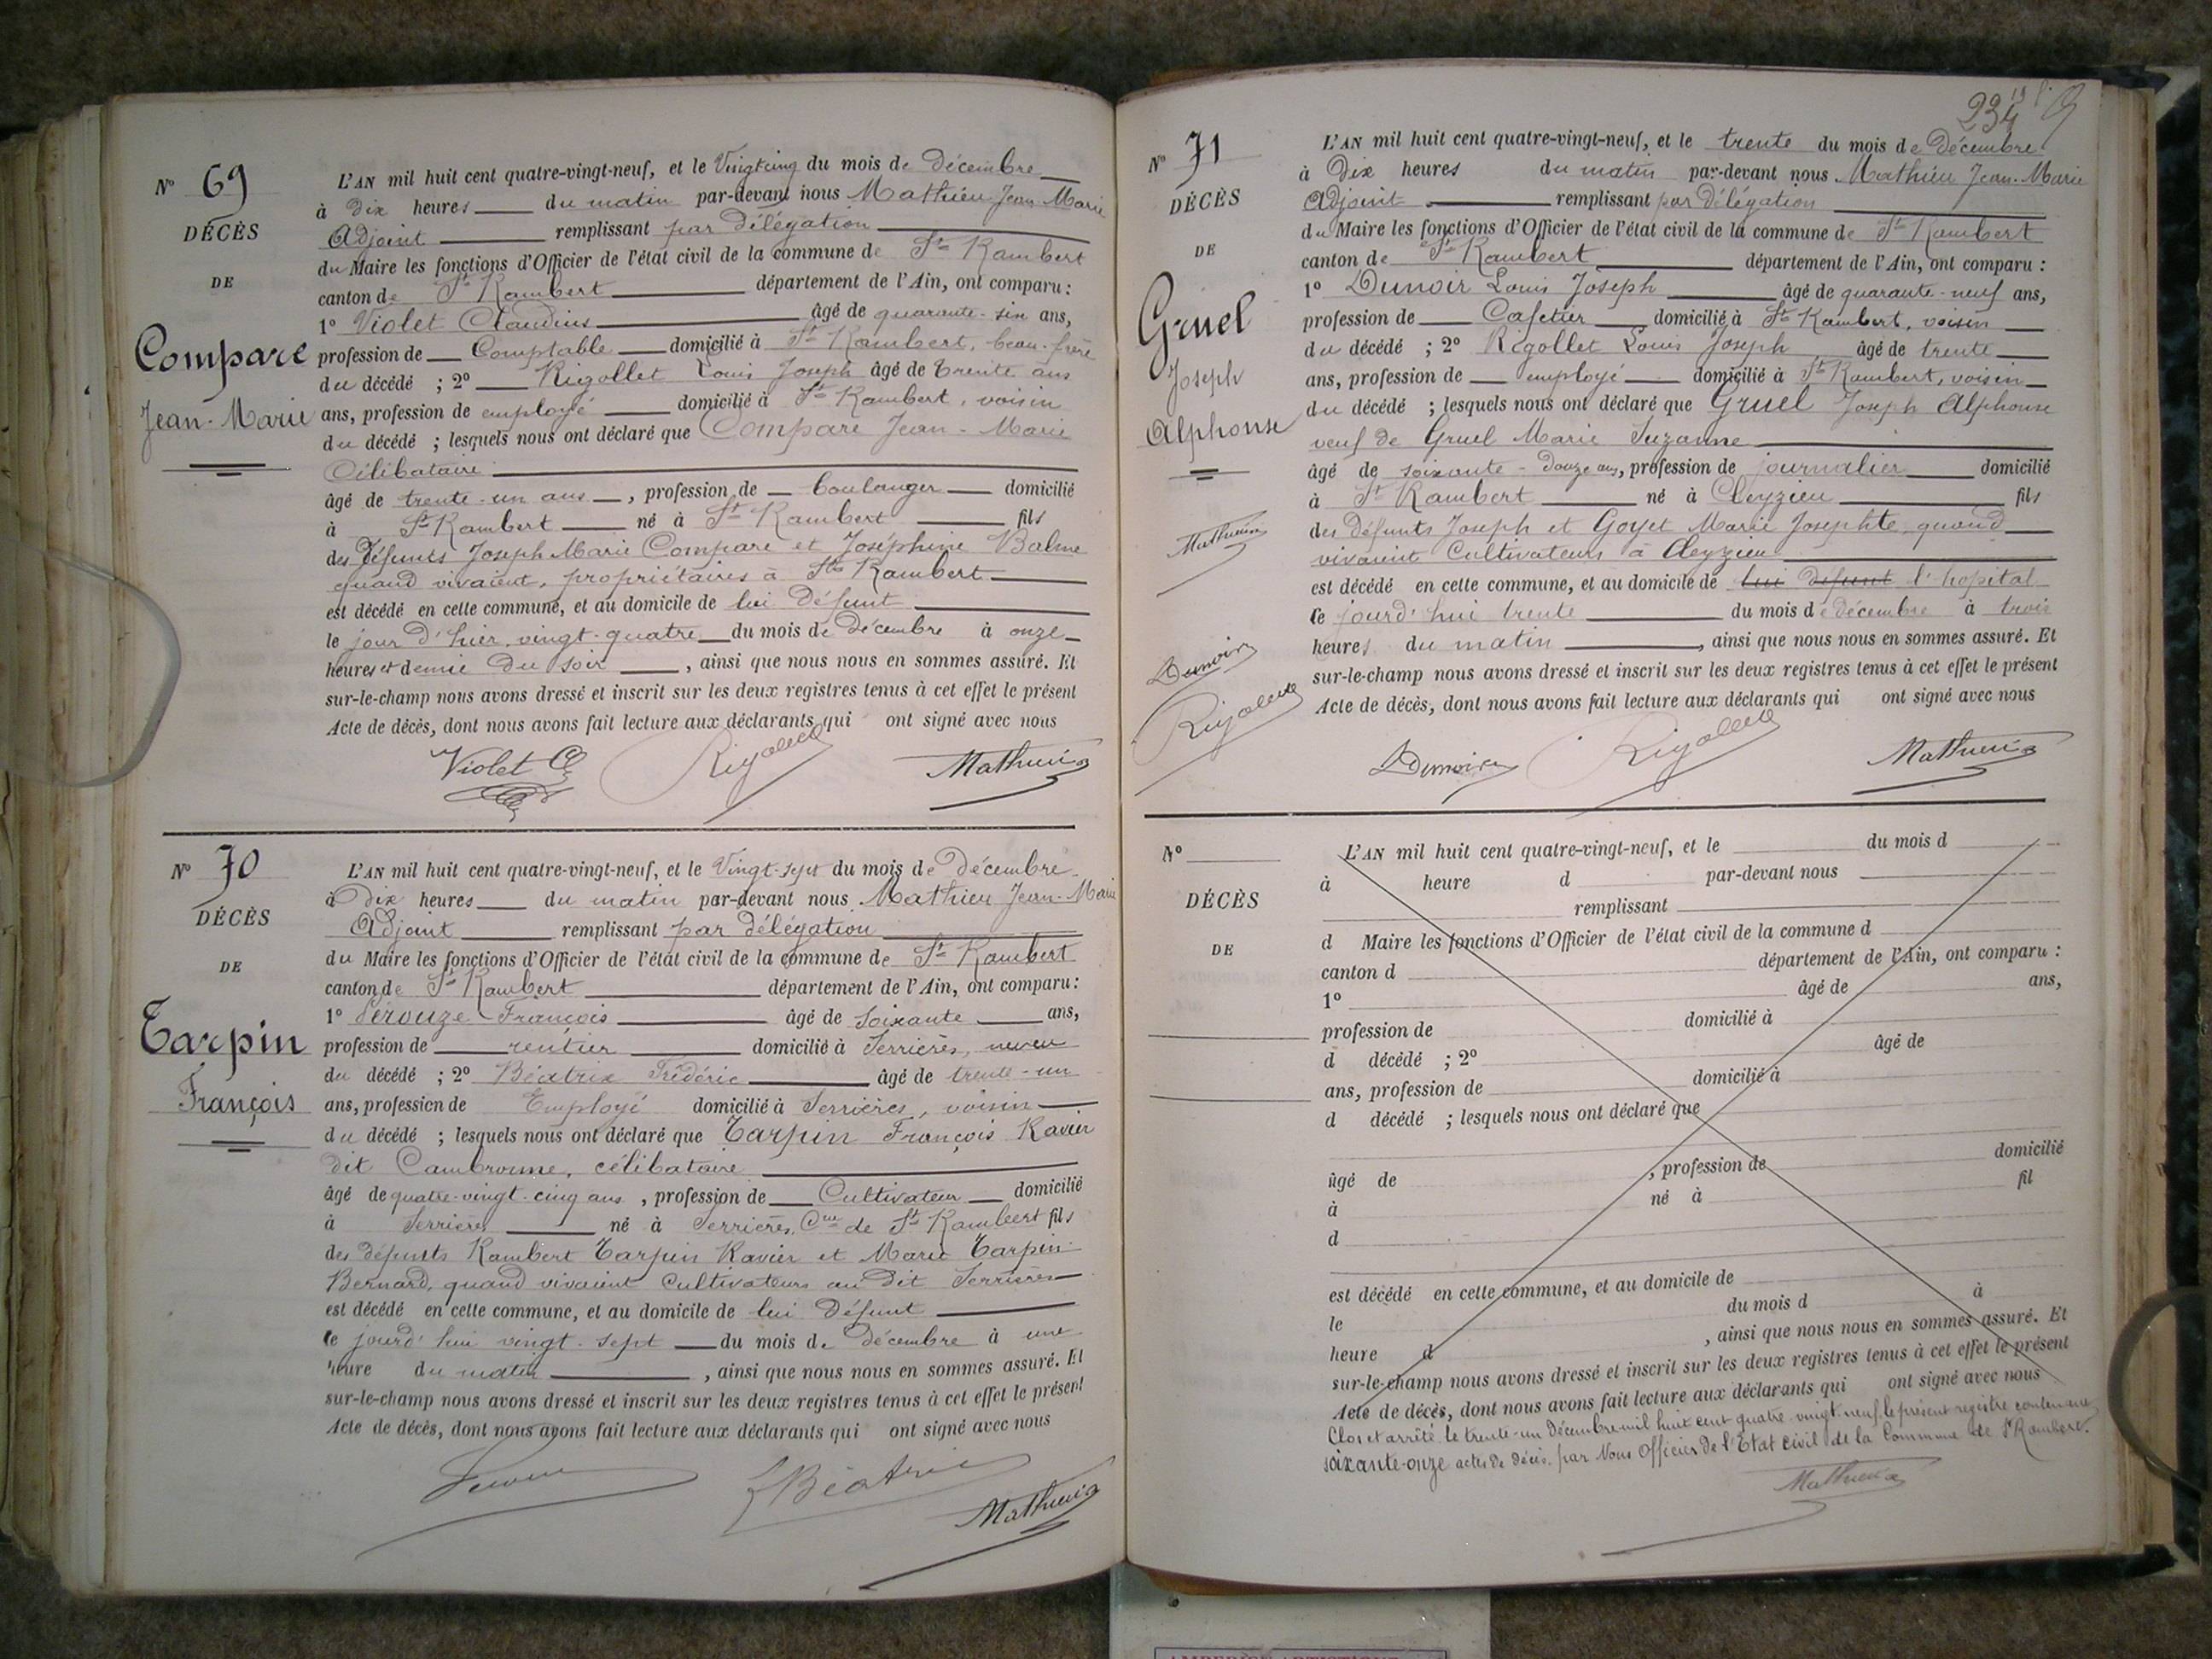 N° 69
DÉCÈS
DE
Compare
Jean-Marie
L'AN mil huit cent quatre-vingt-neuf, et le Vingt cinq du mois de Décembre
à Dix heures du matin par-devant nous Mathieu Jean-Marie
Adjoint remplissant par Délégation
du Maire les fonctions d'Officier de l'état civil de la commune de St Rambert
canton de St Rambert département de l'Ain, ont comparu :
1° Violet Claudius âgé de quarante-six ans,
profession de Comptable domicilié à St Rambert, beau-frère
du décédé ; 2° Rigollet Louis Joseph âgé de trente ans
ans, profession de employé domicilié à St Rambert, voisin
du décédé ; lesquels nous ont déclaré que Compare Jean-Marie
Célibataire
âgé de trente-un ans, profession de boulanger domicilié
à St Rambert né à St Rambert fils
des Défunts Joseph Marie Compare et Joséphine Balme
quand vivaient, propriétaires à St Rambert
est décédé en cette commune, et au domicile de lui Défunt
le jour d'hier, vingt-quatre du mois de Décembre à onze
heures et demie du soir, ainsi que nous nous en sommes assuré. Et
sur-le-champ nous avons dressé et inscrit sur les deux registres tenus à cet effet le présent
Acte de décès, dont nous avons fait lecture aux déclarants qui ont signé avec nous
Violet Cl Rigollet Mathieu
N° 70
DÉCÈS
DE
Tarpin
François
L'AN mil huit cent quatre-vingt-neuf, et le Vingt-sept du mois de Décembre
à Dix heures du matin par-devant nous Mathieu Jean-Marie
Adjoint remplissant par délégation
du Maire les fonctions d'Officier de l'état civil de la commune de St Rambert
canton de St Rambert département de l'Ain, ont comparu :
1° Pérouze François âgé de soixante ans,
profession de rentier domicilié à Serrières, neveu
du décédé ; 2° Béatrix Frédéric âgé de trente-un
ans, profession de Employé domicilié à Serrières, voisin
du décédé ; lesquels nous ont déclaré que Tarpin François Ravier
dit Cambronne, célibataire
âgé de quatre-vingt-cinq ans, profession de Cultivateur domicilié
à Serrières né à Serrières, Cne de St Rambert fils
des défunts Rambert Tarpin Ravier et Marie Tarpin
Bernard, quand vivaient Cultivateurs au dit Serrières
est décédé en cette commune, et au domicile de lui Défunt
le jourd'hui vingt-sept du mois de Décembre à une
heure du matin, ainsi que nous nous en sommes assuré. Et
sur-le-champ nous avons dressé et inscrit sur les deux registres tenus à cet effet le présent
Acte de décès, dont nous avons fait lecture aux déclarants qui ont signé avec nous
F Béatrix
Mathieu
234
N° 71
DÉCÈS
DE
Gruel
Joseph
Alphonse
Mathieu
Dunoir
Rigollet
L'AN mil huit cent quatre-vingt-neuf, et le trente du mois de Décembre
à Dix heures du matin par-devant nous Mathieu Jean-Marie
Adjoint remplissant par Délégation
du Maire les fonctions d'Officier de l'état civil de la commune de St Rambert
canton de St Rambert département de l'Ain, ont comparu :
1° Dunoir Louis Joseph âgé de quarante-neuf ans,
profession de Cafetier domicilié à St Rambert, voisin
du décédé ; 2° Rigollet Louis Joseph âgé de trente
ans, profession de employé domicilié à St Rambert, voisin
du décédé ; lesquels nous ont déclaré que Gruel Joseph Alphonse
veuf de Gruel Marie Suzanne
âgé de soixante-Douze ans, profession de journalier domicilié
à St Rambert né à Cleyzieu fils
des Défunts Joseph et Goyet Marie Josephte, quand
vivaient Cultivateurs à Cleyzieu
est décédé en cette commune, et au domicile de lui Défunt l'hopital
le jourd'hui trente du mois de décembre à trois
heures du matin, ainsi que nous nous en sommes assuré. Et
sur-le-champ nous avons dressé et inscrit sur les deux registres tenus à cet effet le présent
Acte de décès, dont nous avons fait lecture aux déclarants qui ont signé avec nous
LDunoir Rigollet Mathieu
N°
DÉCÈS
DE
L'AN mil huit cent quatre-vingt-neuf, et le du mois d
à heure d par-devant nous
remplissant
d Maire les fonctions d'Officier de l'état civil de la commune d
canton d département de l'Ain, ont comparu :
1° âgé de ans,
profession de domicilié à
d décédé ; 2° âgé de
ans, profession de domicilié à
d décédé ; lesquels nous ont déclaré que
âgé de , profession de domicilié
à né à fil
d
est décédé en cette commune, et au domicile de
le du mois d à
heure d , ainsi que nous nous en sommes assuré. Et
sur-le-champ nous avons dressé et inscrit sur les deux registres tenus à cet effet le présent
Acte de décès, dont nous avons fait lecture aux déclarants qui ont signé avec nous
Clos et arrêté le trente-un Décembre mil huit cent quatre-vingt-neuf, le présent registre contenant
soixante-onze actes de décès, par Nous Officier de l'Etat civil de la Commune de St Rambert.
Mathieu